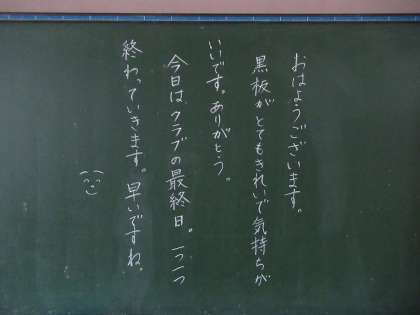 おはようございます。
黒板がとてもきれいで気持ちが
いいです。ありがとう。
今日は、クラブの最終日。一つ一つ
終わっていきます。早いですね。